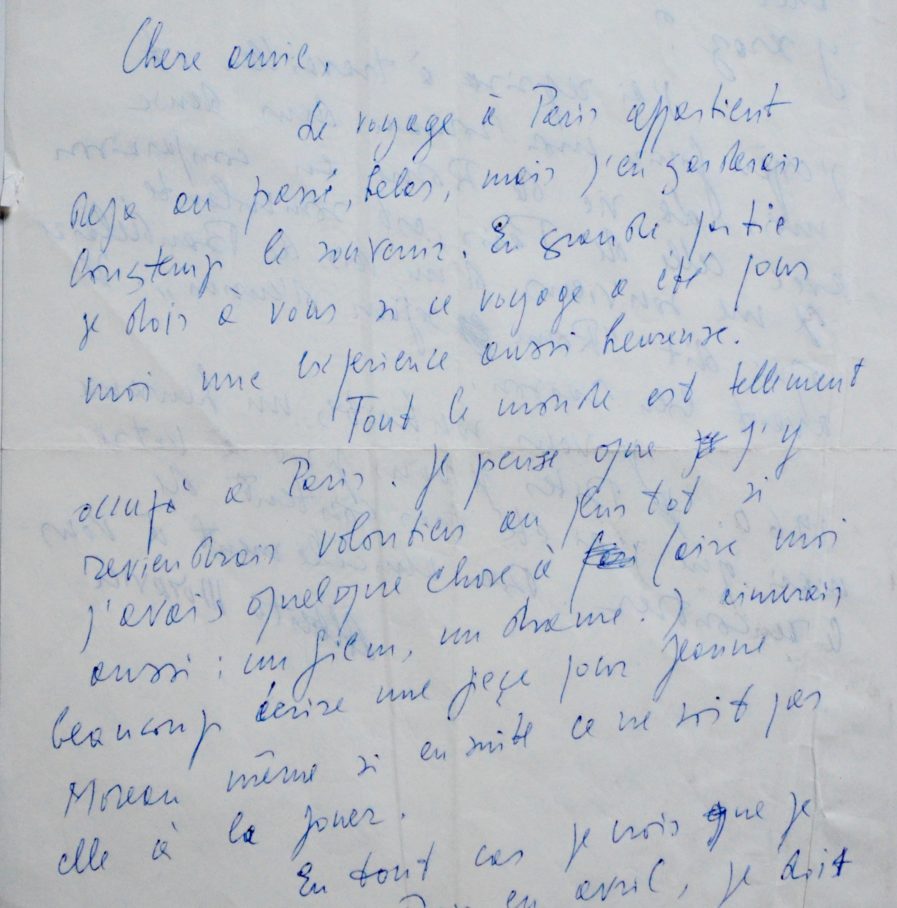 Chere amie,
Le voyage à Paris appartient
deja au passé, helas, mais j'en garderais
longtemps le souvenir. En grande partie
je dois a vous si ce voyage a été pour
moi une experience aussi heureuse.
Tout le monde est tellement
occupé a Paris. Je pense que j'y
reviendrais volontiers au plus tot si
j'avais quelque chose à faire moi
aussi: un film, un drame. J'aimerais
beaucoup écrire une pieçe pour Jeanne
Moreau même si en suite ce ne soit pas
elle à la jouer.
En tout cas je crois que je
en avril, je doit